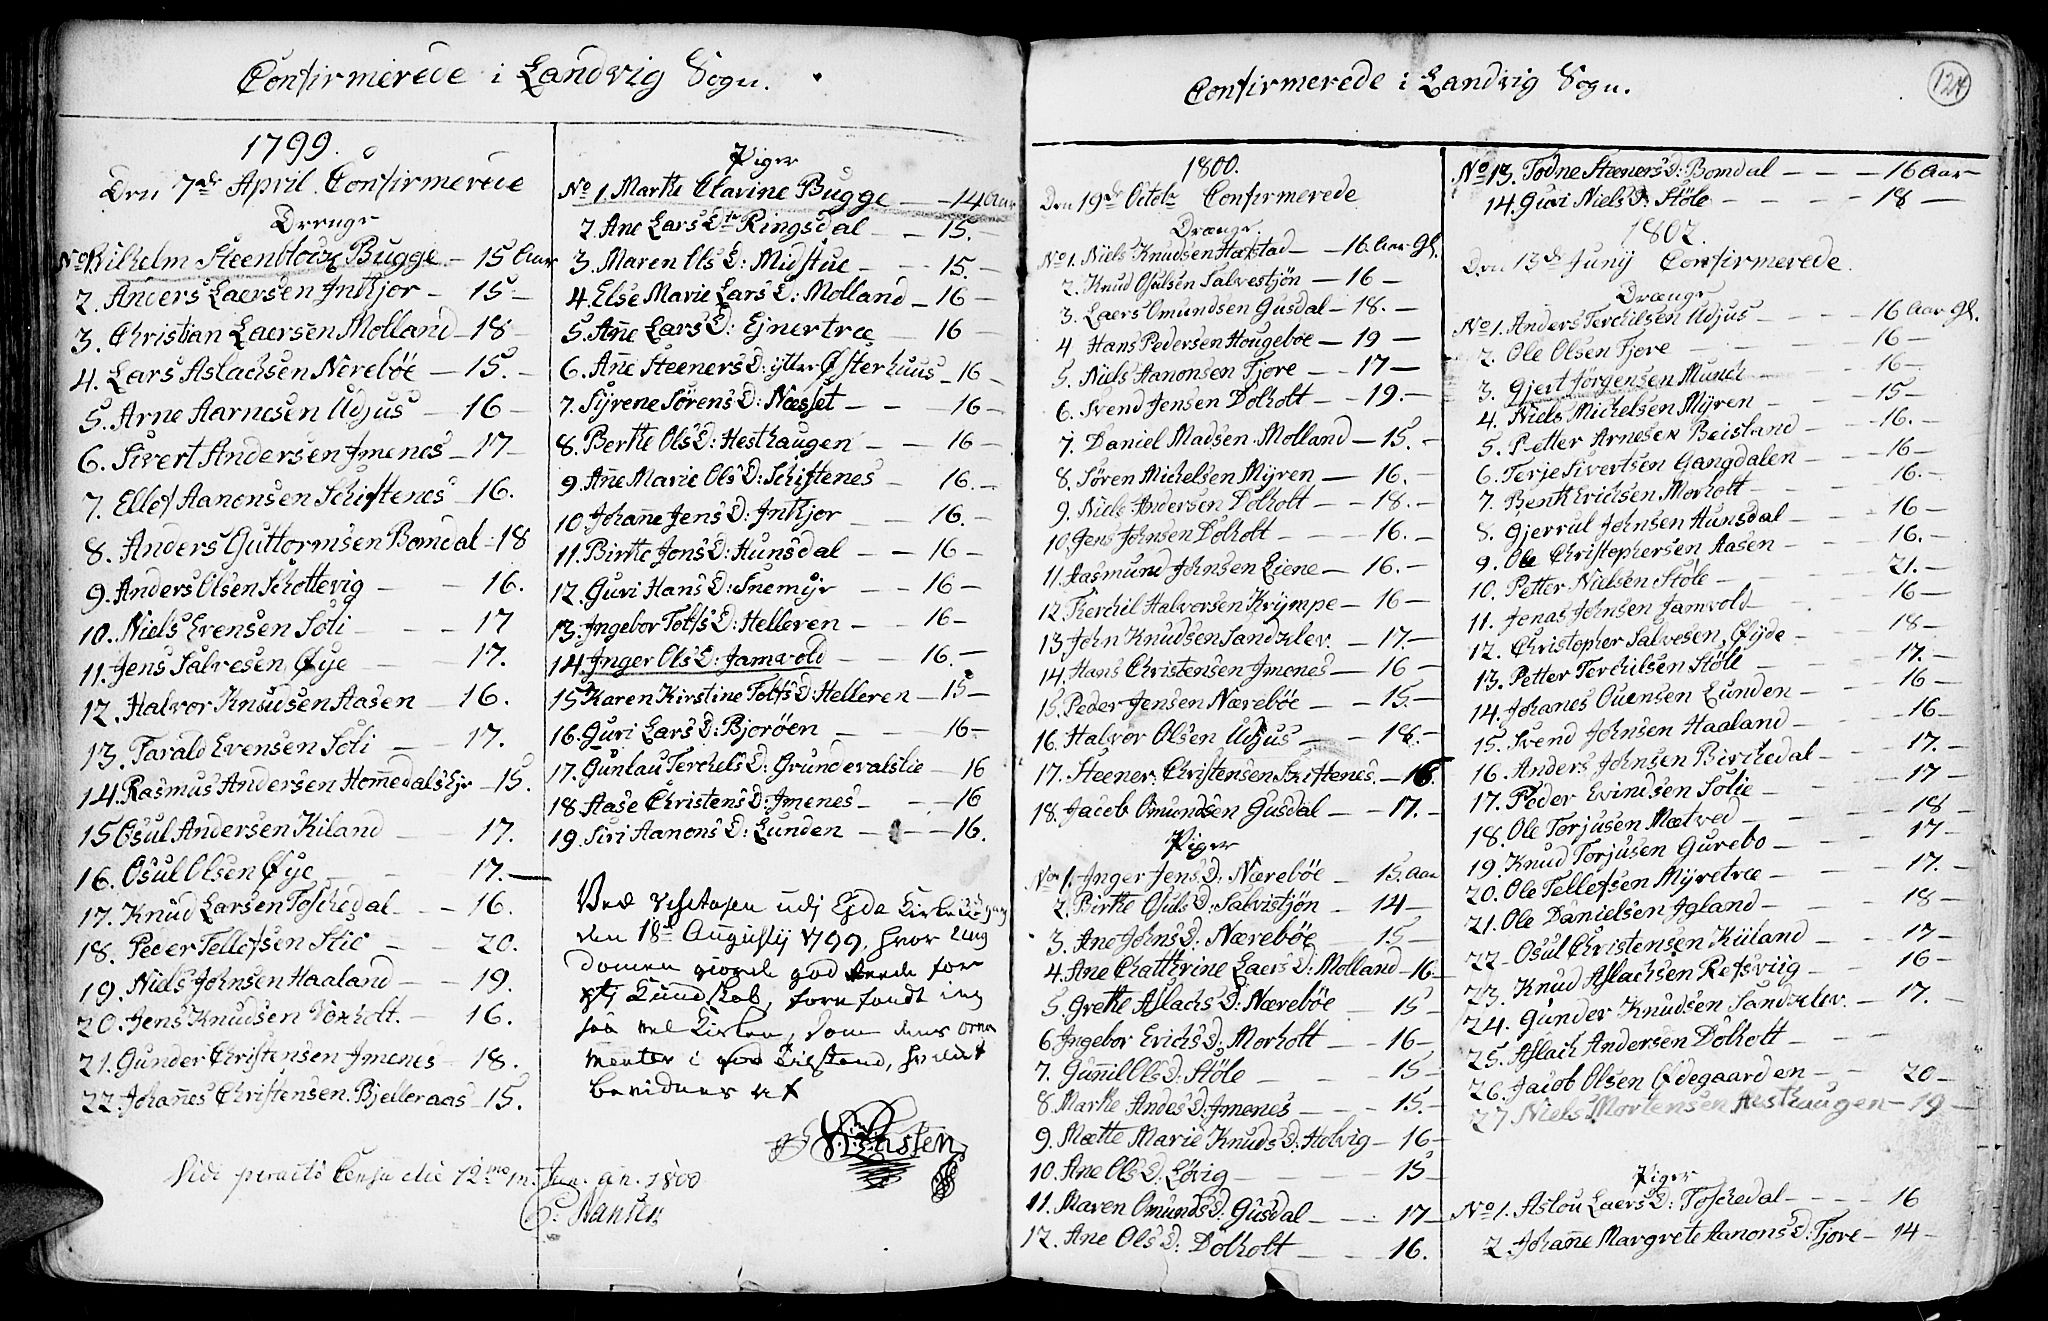 Confirmerede i Landvig Sogn.
1799.
Den 7de April Confirmerede
Drenge
No 1. Vilhelm Steenblock Bugge - 15 Aar
2. Anders Laersen Inthjor - 15 -
3. Christian Laersen Molland - 18 -
4. Lars Aslachsen Nereböe - 15. -
5. Arne Aarnesen Udjus - 16 -
6. Sivert Andersen Imenes - 17 -
7. Ellef Aanonsen Schiftenes - 16.
8. Anders Guttormsen Bomdal - 18
9. Anders Olsen Schottevig - - 16.
10. Niels Evensen Soli - - - 17
11. Jens Salvesen Øye - - 17.
12. Halvor Knudsen Aasen - 16.
13. Tarald Evensen Soli - - 17.
14. Rasmus Andersen Homedals - 15.
15 Osul Andersen Kiland - - 17.
16. Osul Olsen Øye - - 17. -
17. Knud Larsen Toschedal - - 16.
18. Peder Tellefsen Stie - - 20.
19. Niels Johnsen Haaland - - 19.
20. Jens Knudsen - - 16.
21. Gunder Christensen Imenes - 18.
22. Johannes Christensen Bjelleraas - 15.
Vidi peracto Censu die 12mo m. Jan. an. 1800
P: Hansen
Piger
No 1. Marthe Clavine Bugge - - 14 Aar
2. Ane Lars Dtr Ringsdal - - 15. -
3. Maren Ols D: Midstue - - 15. -
4. Else Marie Lars D: Molland - 16 -
5. Anne Lars D: Ejnertræ - 16 -
6. Ane Steeners D: ytter Østerhuus - 16 -
7. Syrene Sörens D: Næsset - - 16 -
8. Berthe Ols D: Hesthaugen - - 16 -
9. Anne Marie Ols D: Schiftenes - 16. -
10. Johanne Jens D: Inthjor - - 16. -
11. Birthe Jons D: Hunsdal - - 16 -
12. Guri Hans D: Snemyr - - 16 -
13. Ingebor Tolfs D: Helleren - - 16 -
14. Inger Ols D: Jamvold - - 16. -
15 Karen Kirstine Tolfs D: Helleren - 15 -
16. Guri Lars D: Bjoröen - - 16 -
17. Gunlau Terchels D: Grundevatslie - 16
18 Aase Christens D: Imenes - - - 16
19. Siri Aanons D: Lunden - - - 16.
Ved Visitasen udj Eyde Kirke
den 18de Augustij 1799, hvor Ung
domen giorde god rede for
sig Kundskab, forefandt jeg
saa vel Kirken, som dens orna
menter i god tilstand, hvilket
bevidnes af
Confirmerede i Landvig Sogn.
124
1800.
Den 19de Octobr Confirmerede
Drænge.
No 1. Niels Knudsen Hæstad - - 16. Aar Gl.
2. Knud Osulsen Salvestjön - 16 -
3. Laers Omundsen Gusdal - 18. -
4 Hans Pedersen Hougeböe - 19 -
5. Niels Aanonsen Fjore - - 17 -
6. Svend Jensen Dolholt - - 19. -
7. Daniel Madsen Molland - 15. -
8. Sören Michelsen Myren - 16. -
9. Niels Andersen Dolholt - - 18. -
10. Jens Johnsen Dolholt - - - 16. -
11. Aasmund Johnsen Eiene - 16. -
12. Terchil Halvorsen Krympe - 16 -
13. John Knudsen Sandklev - 17. -
14. Hans Christensen Imenes - 16 -
15. Peder Jensen Næreböe - - 15. -
16. Halvor Olsen Udjus - - 18. -
17. Steener Christensen Skiftenes. - 16.
18. Jacob Omundsen Gusdal - - 17. -
Piger
No 1. Inger Jens D: Næreböe - 15. Aar
2. Birthe Osuls D: Salvistjön - 14 -
3. Ane Johns D: Næreböe - 15 -
4. Ane Chathrine Laers D: Molland - 16 -
5. Grethe Aslachs D: Næreböe - 15 -
6. Ingebor Erichs D: Morholt - 16 -
7. Gunil Ols D: Stöle - - - 15 -
8. Marthe Andes D: Imenes - - - 15. -
9. Mætte Marie Knuds D: Holvig - 16 -
10. Ane Ols D: Lövig - - - 15 -
11. Maren Omunds D: Gusdal - - - 17 -
12. Ane Ols D: Dolholt - - - 16.
No 13. Todne Steeners D: Bomdal - - - 16 Aar
14. Guri Niels D: Stöle - - - - 18 -
1802.
Den 13de Junij Confirmerede.
Drænge
No 1. Anders Terchilsen Udjus - - - - 16 Aar Gl.
2. Ole Olsen Fjore - - - - 16 -
3. Gjert Jörgensen Munch - - - 16 -
4. Niels Michelsen Myren - - - 15 -
5. Petter Arnesen Beisland - - - 16. -
6. Terje Sivertsen Gangdalen - - - 16 -
7. Benth Erichsen Morholt - - - 16. -
8. Gjerrul Johnsen Hunsdal - - - 16 -
9. Ole Christophersen Aasen - - - 16. -
10. Petter Nielsen Stöle - - - - 21. -
11. Jonas Johnsen Jamvold - - - 16 -
12. Christopher Salvesen Øyde - - - 18 -
13. Petter Terchilsen Stöle - - - 17. -
14. Johanes Ouensen Lunden - - - 16 -
15. Svend Johnsen Haaland - - - 16 -
16. Anders Johnsen Birchedal - - - 17. -
17. Peder Evindsen Solie - - - 17 -
18. Ole Torjusen Mætved - - - 18 -
19. Knud Torjusen Gurebo - - - 17 -
20. Ole Tellefsen Myretræ - - - 17. -
21. Ole Danielsen Igland - - - 18 -
22 Osul Christensen Kiiland - - - 17 -
23. Knud Aslachsen Refsviig - - - 16 -
24. Gunder Knudsen Sandklev - - 17. -
25. Aslach Andersen Dolholt - - -
26. Jacob Olsen Ødegaarden - - - 20 -
27 Niels Mortensen Hesthaugen - 19 -
Piger
No 1. Aslou Laers D: Toschedal - - - 16
2. Johanne Margrete Aanons D: Fjore - 14 -